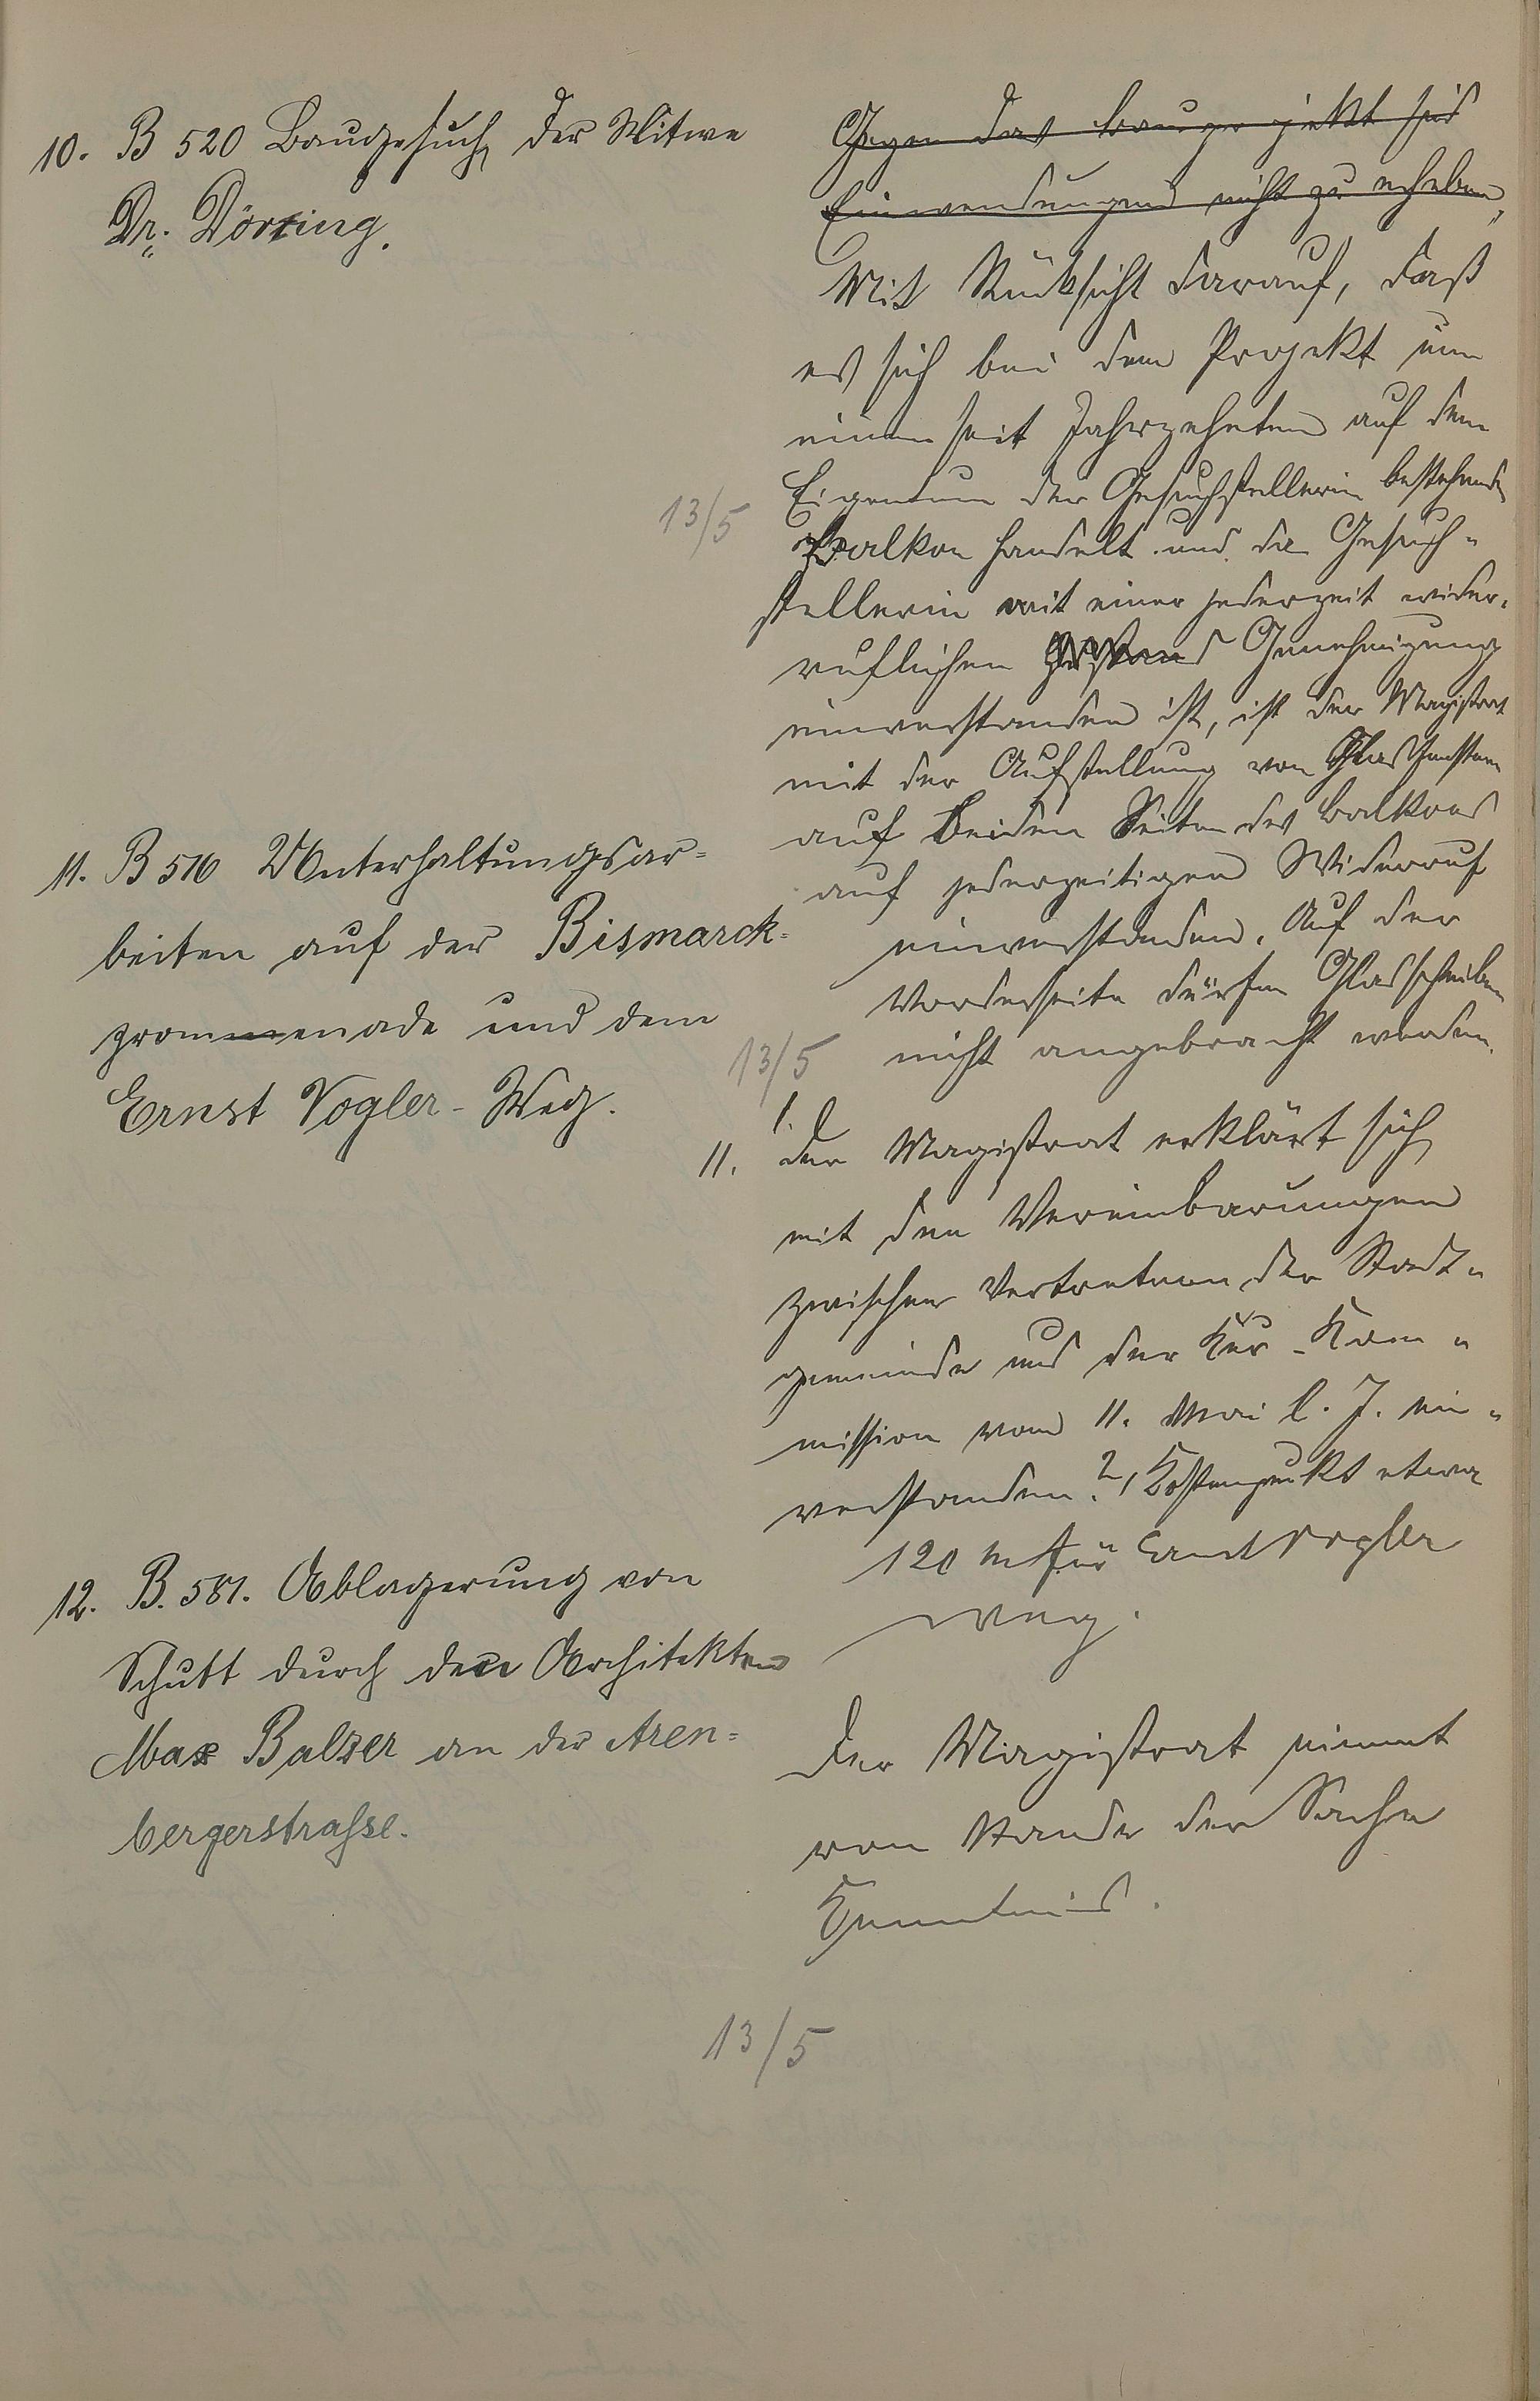 10. B 520 Baugesuch der Witwe
Dr. Dörring.
Gegen das Bauprojekt sind
Einwendungen nicht zu erheben,
Mit Rücksicht darauf, daß
es sich bei dem Projekt um
einen seit Jahrzehnten auf dem
Eigentum der Gesuchstellerin bestehenden
13/5
Balkon handelt und da Gesuch-
stellerin mit einer jederzeit wider-
ruflichen Genehmigung
einverstanden ist, ist der Magistrat
mit der Aufstellung von Glasfenstern
auf beiden Seiten des Balkons
auf jederzeitigen Widerruf
einverstanden. Auf der
Vorderseite dürfen Glasscheiben
nicht angebracht werden.
11. B 516 Unterhaltungsar-
beiten auf der Bismarck-
promenade und dem
Ernst Vogler-Weg.
13/5
1.
11. Der Magistrat erklärt sich
mit den Vereinbarungen
zwischen Vertretern der Stadt-
gemeinde und der Kur-Kom-
mission vom 11. Mai l. J. ein-
verstanden. 2, Kostenpunkt etwa
120 M für Ernst Vogler
Weg.
12. B. 581. Ablagerung von
Schutt durch den Architekten
Max Balzer an der Aren-
bergerstrasse.
Der Magistrat nimmt
vom Stande der Sache
Kenntnis.
13/5